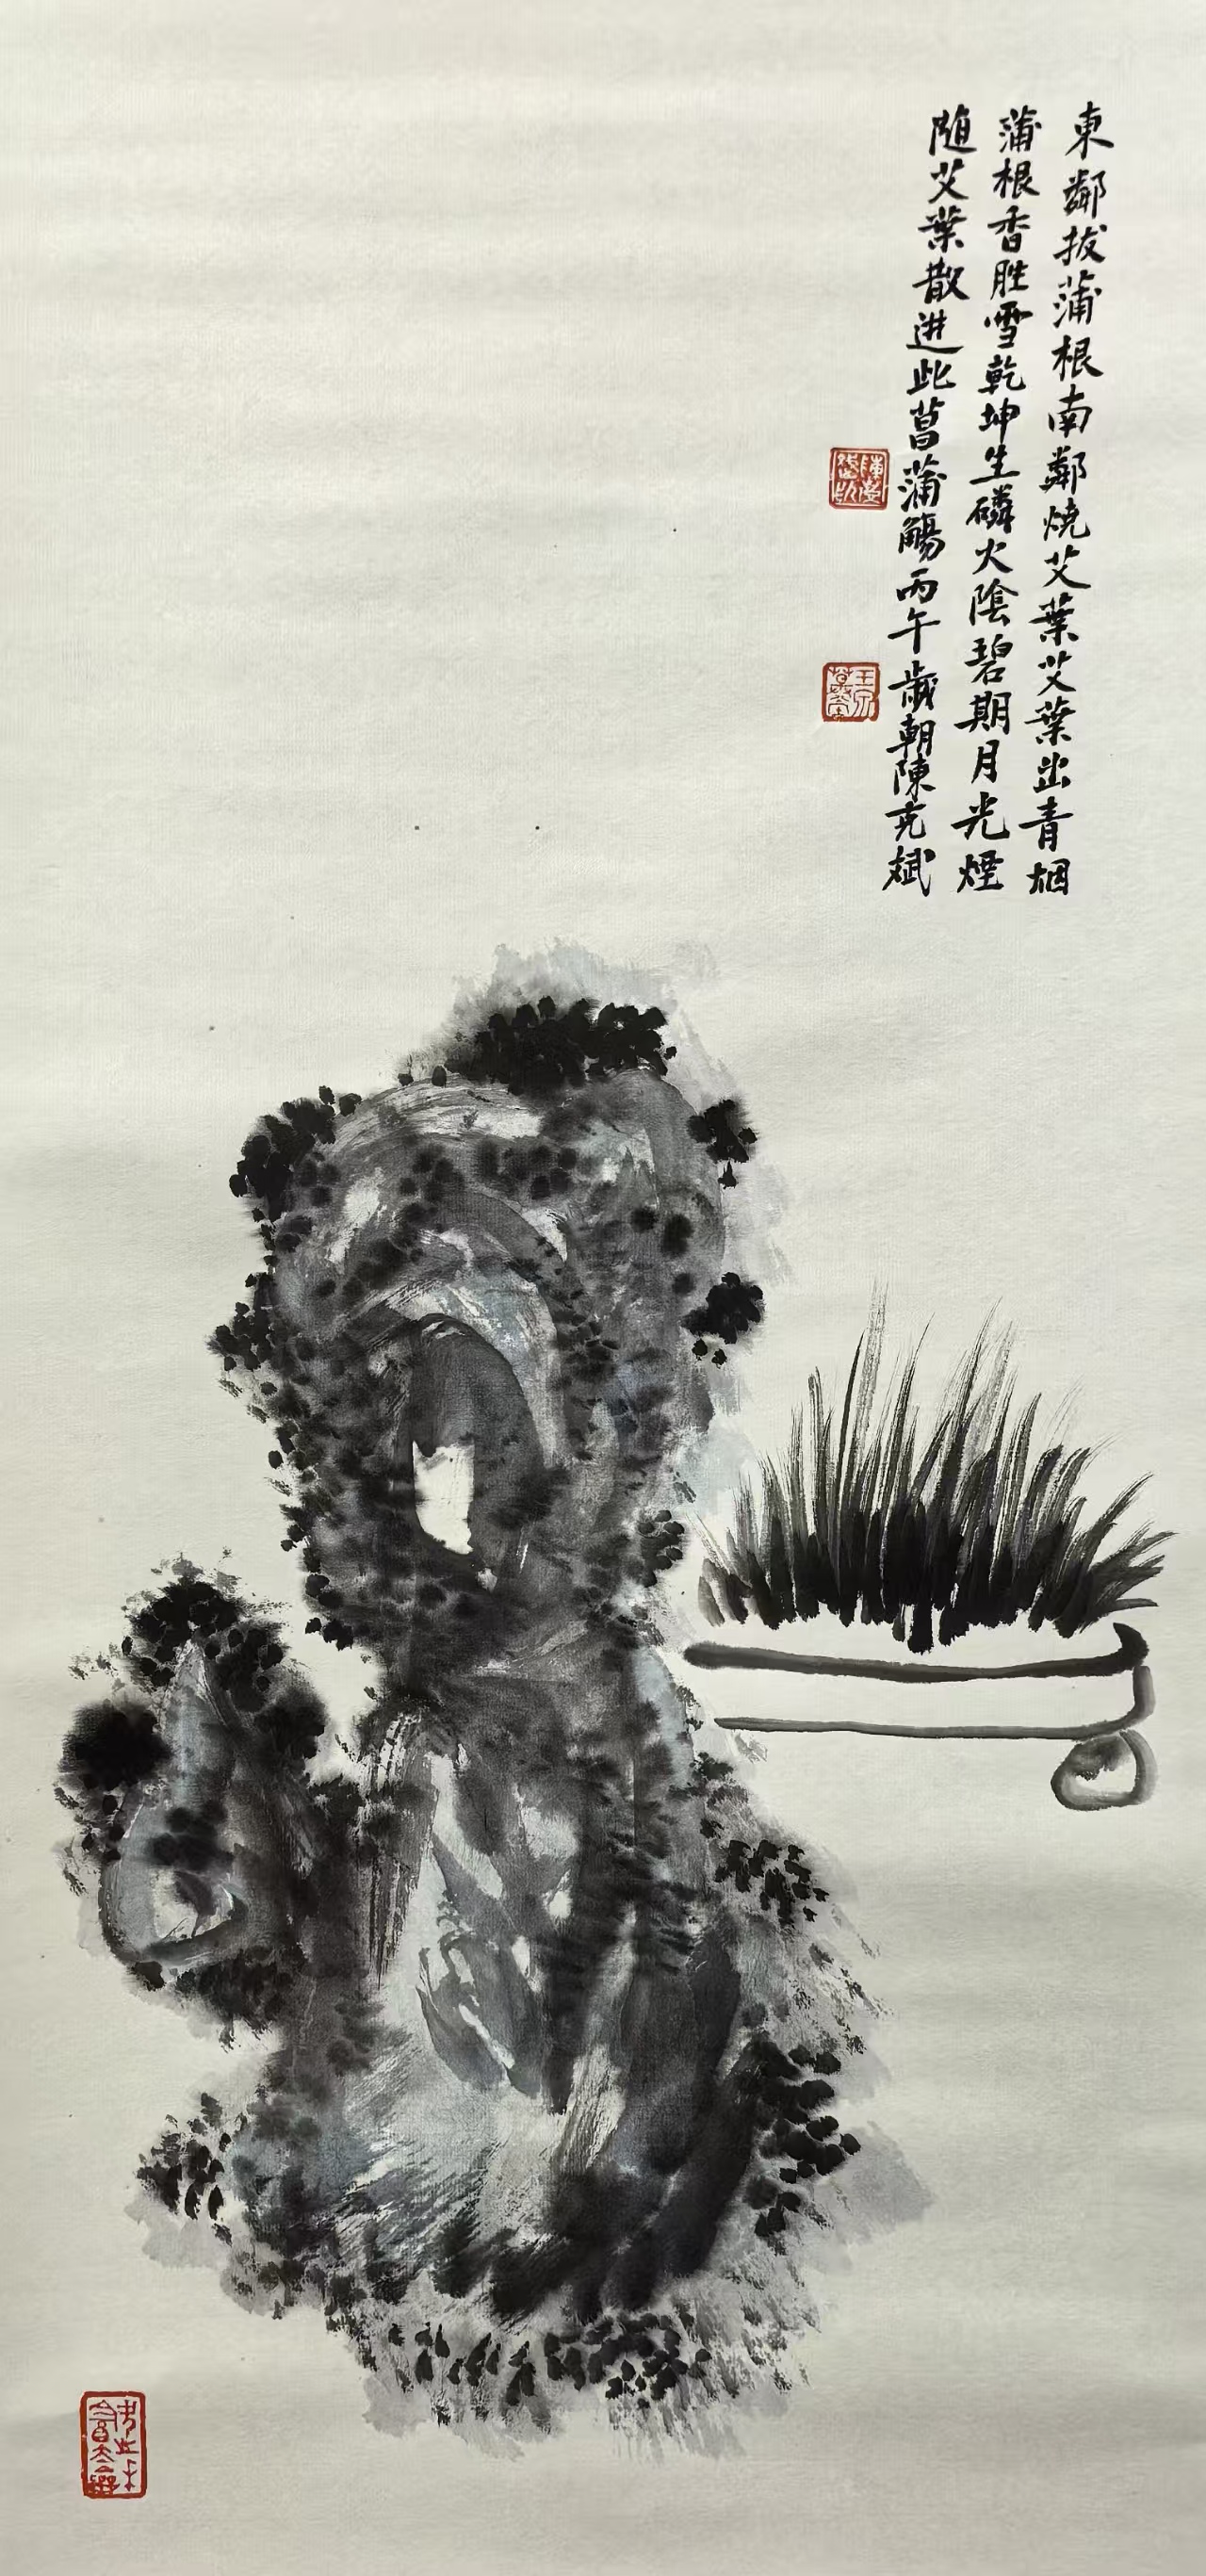 東鄰拔蒲根南鄰燒艾葉艾葉出青烟
蒲根香胜雪乾坤生磷火陰碧期月光煙
随艾葉散进此菖蒲觴丙午歲朝陳克斌